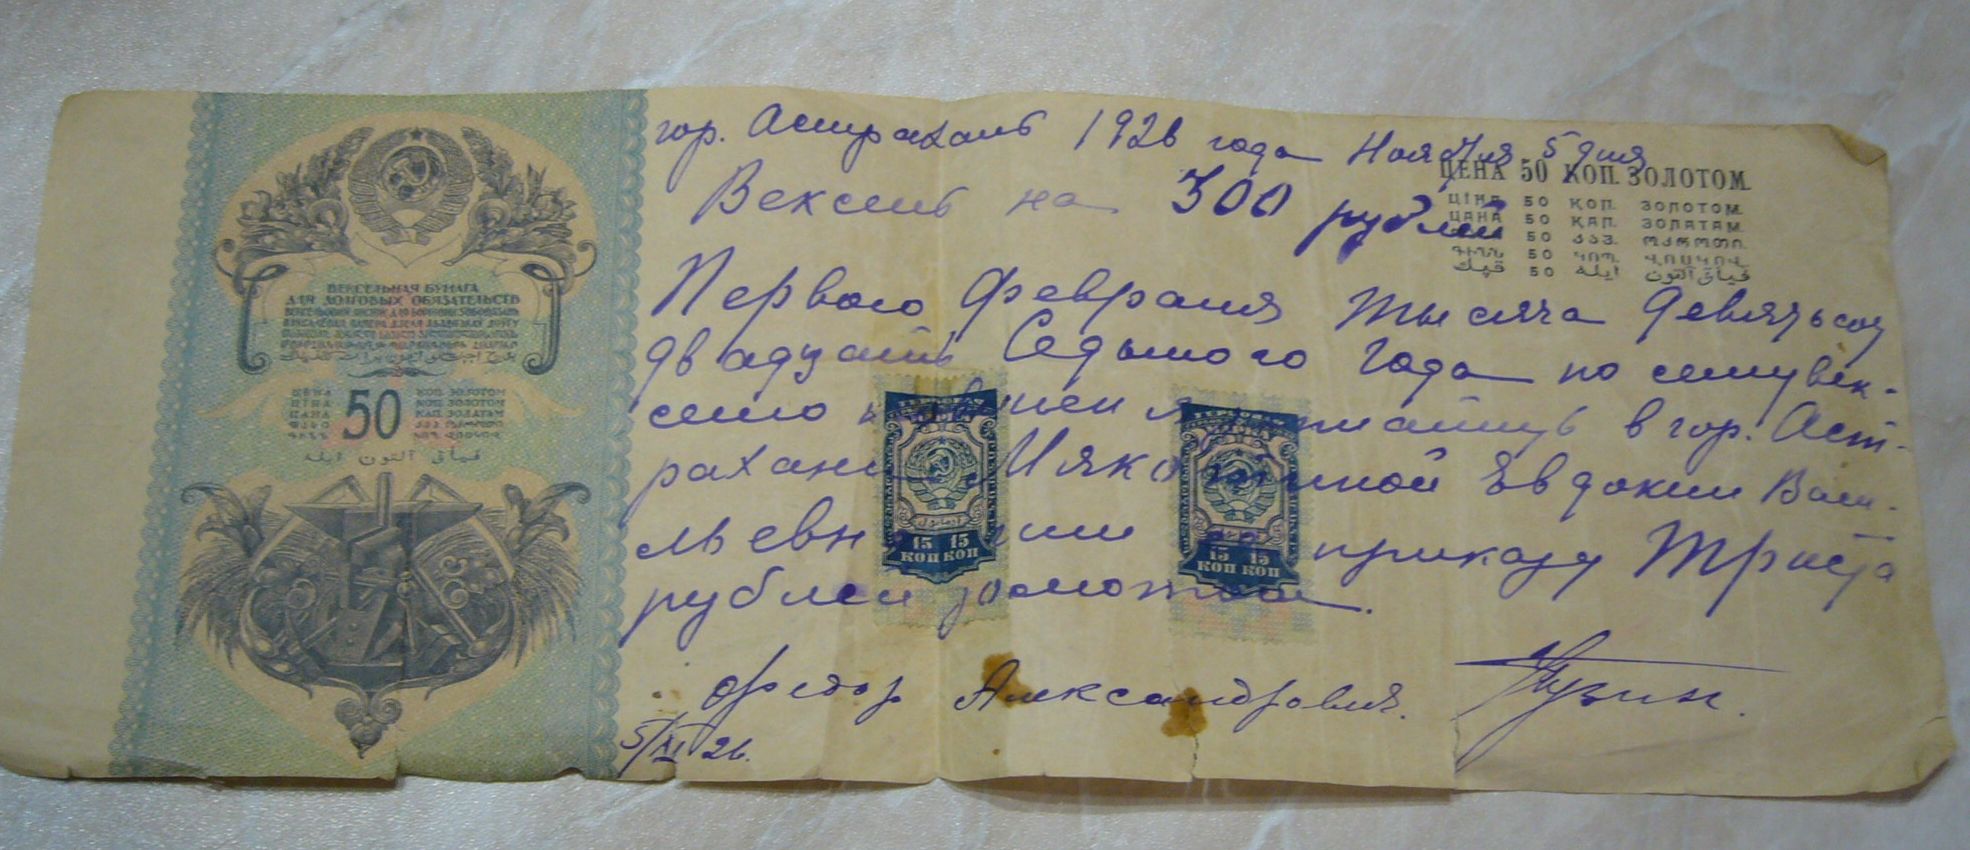 ВЕКСЕЛЬНАЯ БУМАГА
ДЛЯ ДОЛГОВЫХ ОБЯЗАТЕЛЬСТВ
ЦЕНА 50 КОП. ЗОЛОТОМ
ЦІНА КОП. ЗОЛОТОМ
ЦАНА КАП. ЗОЛАТАМ
гор. Астрахань 1926 года Ноября 5 дня
ЦЕНА 50 КОП. ЗОЛОТОМ.
ЦІНА 50 КОП. ЗОЛОТОМ.
ЦАНА 50 КАП. ЗОЛАТАМ.
50
50
قپك 50 ایله
Вексель на 300 рублей
Первого Февраля тысяча девятьсот
двадцать Седьмого года по сему век-
селю повинен я заплатить в гор. Аст-
рахани
Евдокии Васи-
льевне или приказу Триста
рублей золотом.
15 15
КОП КОП
15 15
КОП КОП
Федор Александрович
5/XI 26.